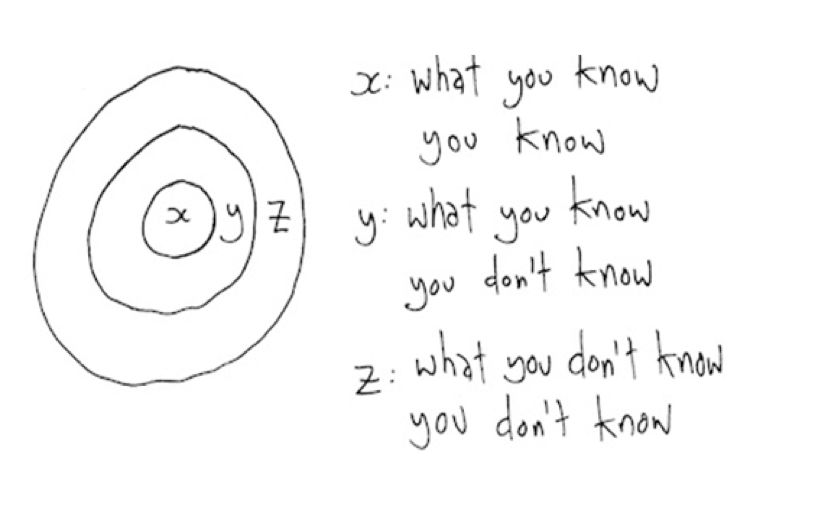 x y z
x: what you know
you know
y: what you know
you don't know
z: what you don't know
you don't know